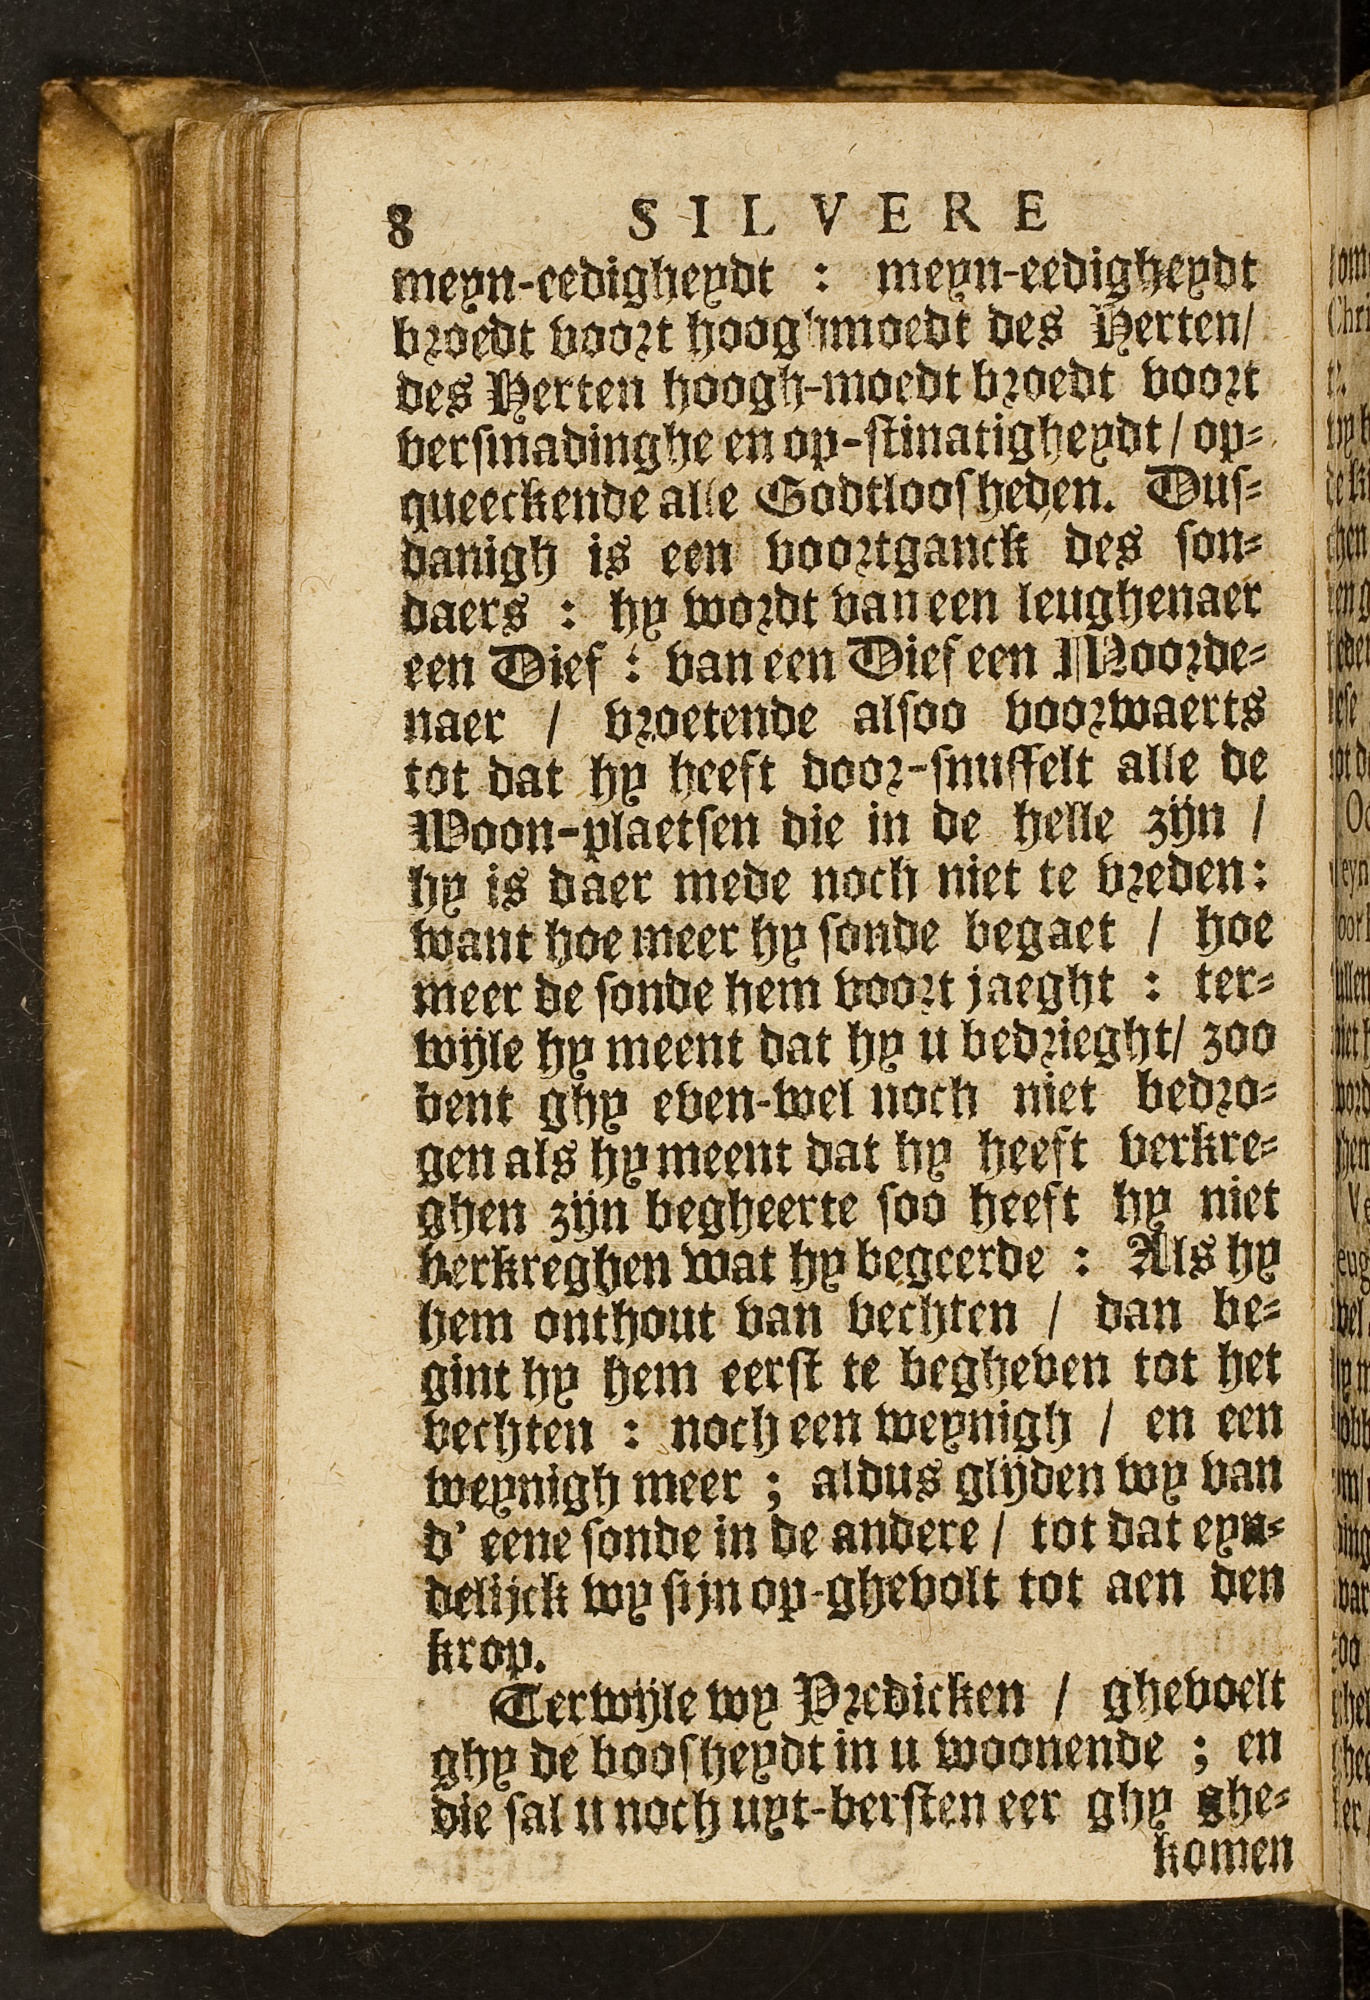 8 SILVERE
meyn-eedigheydt : meyn-eedigheydt
broedt voort hooghmoedt des Herten/
des Herten hoogh-moedt broedt voort
versmadinghe en op-stinatigheydt / op-
queeckende alle Godtloosheden. Dus-
danigh is een voortganck des son-
daers : hy wordt van een leughenaer
een Dief : van een Dief een Moorde-
naer / vroetende alsoo voorwaerts
tot dat hy heeft door-snuffelt alle de
Woon-plaetsen die in de helle zijn /
hy is daer mede noch niet te vreden:
want hoe meer hy sonde begaet / hoe
meer de sonde hem voort jaeght : ter-
wijle hy meent dat hy u bedrieght/ zoo
bent ghy even-wel noch niet bedro-
gen als hy meent dat hy heeft verkre-
ghen zijn begheerte soo heeft hy niet
verkreghen wat hy begeerde : Als hy
hem onthout van vechten / dan be-
gint hy hem eerst te begheven tot het
vechten : noch een weynigh / en een
weynigh meer ; aldus glijden wy van
d' eene sonde in de andere / tot dat eyn-
delijck wy sijn op-ghevolt tot aen den
krop.
Terwijle wy Predicken / ghevoelt
ghy de boosheydt in u woonende ; en
die sal u noch uyt-bersten eer ghy ghe-
komen